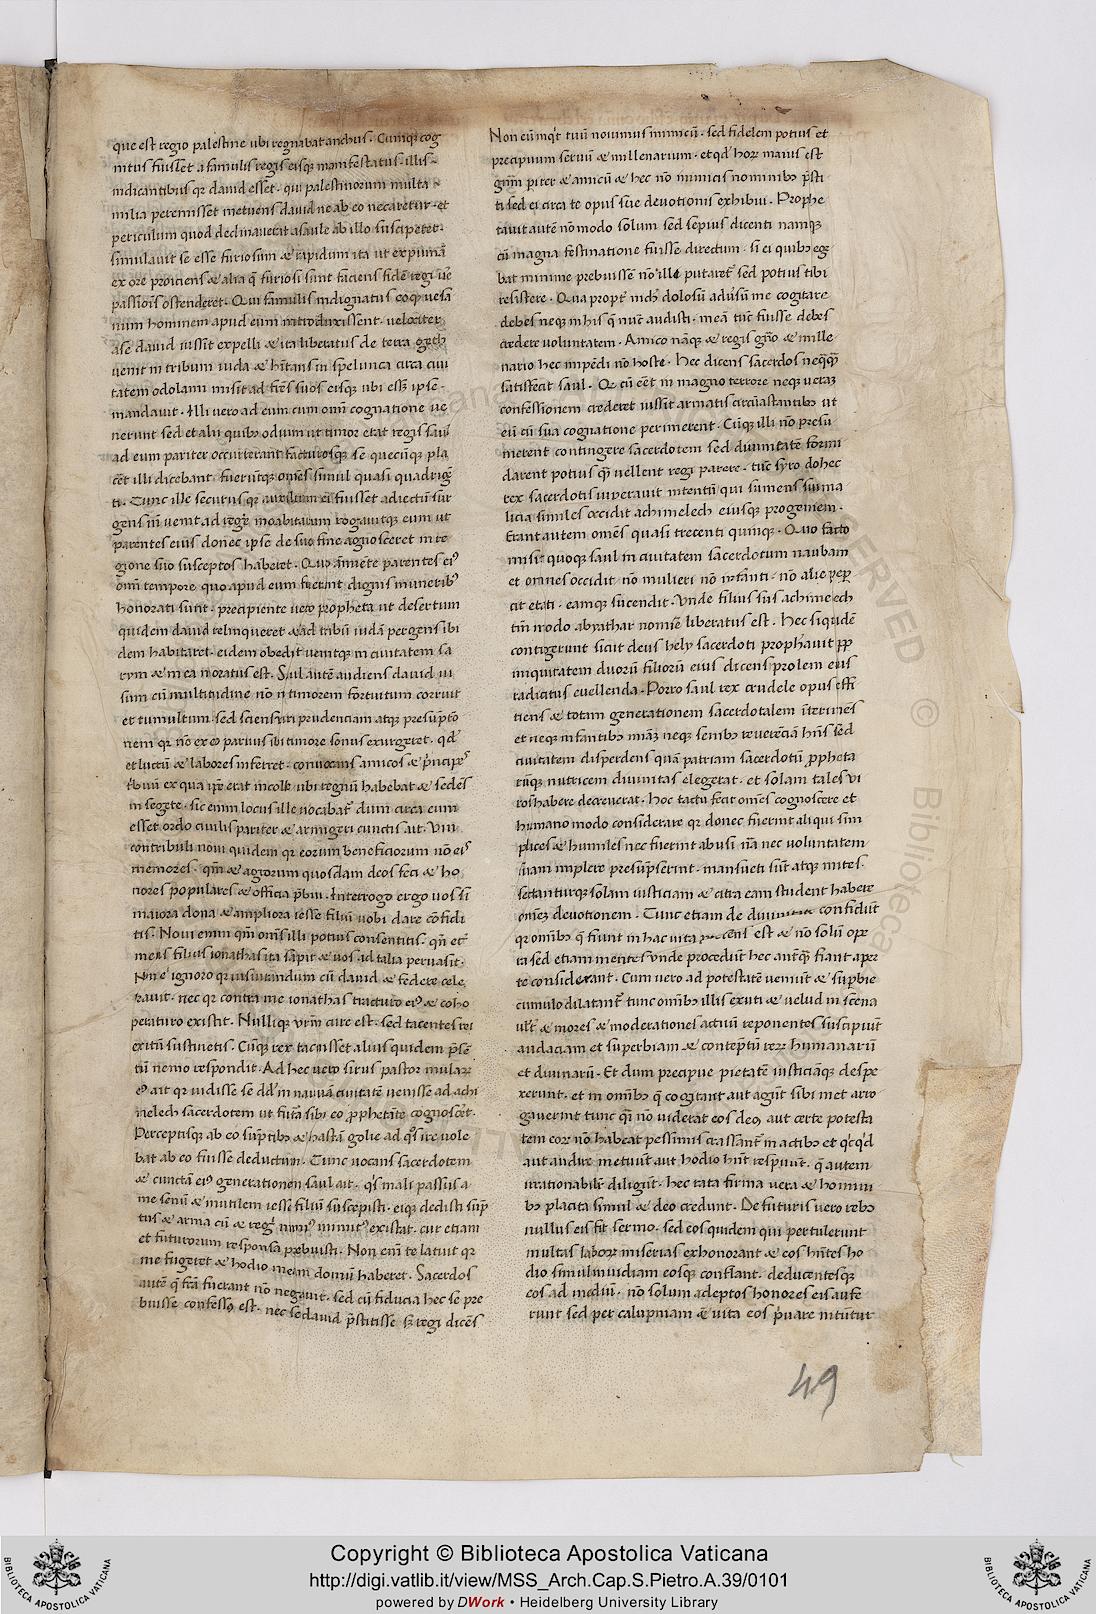 que est regio palestine ubi regnabat anchus. Cumq; cog
nitus fuisset a famulis regis eisq; manifestatus. illis
indicantibus qr david esset. qui palestinorum multa
milia peremisset metuens david ne ab eo necaretur. et
periculum quod declinaverat a saule ab illo susciperet.
simulavit se esse furiosum & rapidum ita ut expumā
ex ore proiciens & alia q̄ furiosi sunt faciens fidē regi ue
passionis ostenderet. Qui famulis indignatus eo q; uesa
num hominem apud eum introduxissent. uelociter
a se david iussit expelli & ita liberatus de terra geth
uenit in tribum iuda & hītans in spelunca circa ciui
tatem odolam misit ad frēs suos eisq; ubi esset ipse
mandauit. Illi uero ad eum cum omni cognatione ue
nerunt sed et alii quib; odium ut timor erat regis saul
ad eum pariter occurrerant facturosq; se quecūq; pla
cēt illi dicebant. fueruntq; omēs simul quasi quadrigē
ti. Tunc ille securus qr auxilium ei fuisset adiectū sur
gens iñ uenit ad regē moabitarum rogauitq; eum ut
parentes eius donec ipse de suo fine agnosceret in re
gione sua susceptos haberet. Quo annuente parentes ei
omī tempore quo apud eum fuerant dignis munerib;
honorati sunt. precipiente uero propheta ut desertum
quidem david relinqueret & ad tribū iudā pergens ibi
dem habitaret. eidem obedit uenitq; in ciuitatem sa
rym & in ea moratus est. Saul autē audiens david ui
sum cū multitudine nō in timorem fortuitum corruit
et tumultum. sed sciens uiri prudenciam atq; presūptō
nem qr nō ex eo paruus ibi timore sonus exurgeret. qd
et luctū & labores inferret. conuocans amicos & principes
tribuū ex qua ipe erat in colle ubi regnū habebat & sedēs
in segete. sic enim locus ille uocabat dum circa eum
esset ordo ciuilis pariter & armigeri cunctis ait. Viri
contribuli noui quidem qr eorum beneficiorum nō eis
memores. qm & agrorum quosdam dños feci & ho
nores populares & officia p̄bui. Interrogo ergo uos si
maiora dona & ampliora iesse filiū uobi dare cōfidi
tis. Noui enim qm omīs illi potius consentitis. qm et
meus filius ionathas ita sapit & uos ad talia peruasit.
Non ē ignoro qr iusiurandum cū david & federe cele
rauit. nec qr contra me ionathas tractaturo ei & coho
peraturo existit. Nulliq; urm cure est. sed tacentes rei
exitū sustinetis. Cūq; rex tacuisset alius quidem p̄sē
tū nemo respondit. Ad hec uero sirus pastor mularum
ei ait qr uidisse se dd in nauuā ciuitatē uenisse ad achi
melech sacerdotem ut futura sibi eo prophetāte cognosceret.
Perceptisq; ab eo sumptib; & hasta golie ad q̄s ire uole
bat ab eo fuisse deductum. Tunc uocans sacerdotem
& cunctā ei generationem saul ait. qs mali passus a
me senū & inutilem iesse filiū suscepisti. eiq; dedisti sūp
tus & arma cū & regi nimis inimicus existat. cur etiam
et futurorum responsa prebuisti. Non eni te latuit qr
me fugeret & hodio meam domū haberet. Sacerdos
autē q̄ fcā fuerant nō negauit. sed cū fiducia hec se pre
buisse confessus est. nec se david p̄stitisse s; regi dicēs
Non eūmqt tuū nouimus inimicū. sed fidelem potius et
precipuum seruū & millenarium. et qd horz maius est
gnm piter & amicū & hec nō inimicis nominib; p̄sti
ti sed ei circa te opus sue deuotionis exhibui. Prophe
tauit autē nō modo solum sed sepius dicenti namq;
cū magna festinatione fuisse directum. si ei quib; ege
bat minime prebuissē nō illi putaret sed potius tibi
resistere. Qua propt nich dolosū adusū me cogitare
debes neq; in his q̄ nūc audisti. meā tūc fuisse debes
credere uoluntatem. Amico naq; & regis gnro & mille
nario hec impēdi nō hoste. Hec dicens sacerdos neq̄q̄
satisfecit saul. Qr cū eēt in magno terrore neq; ueraz
confessionem crederet iussit armatis circūastantib; ut
eū cū sua cognatione perimerent. Cūq; illi nō presū
merent contingere sacerdotem sed diuinitatē formi
darent potius q̄ uellent regi parere. tūc syro dohec
rex sacerdotis uiperauit intentū qui sumens sui ma
licia similes occidit achimelech eiusq; progeniem.
Erant autem omēs quasi trecenti quinq;. Quo facto
misit quoq; saul in ciuitatem sacerdotum naubam
et omnes occidit. nō mulieri nō infanti. nō alie peper
cit etati. eamq; sucendit. Vnde filius suis achimelech
tm modo abyathar nomīe liberatus est. Hec siquidē
contigerunt sicut deus hely sacerdoti prophauit ppp
iniquitatem duorū filiorū eius dicens prolem eius
radicitus euellenda. Porro saul rex crudele opus effi
tiens & totam generationem sacerdotalem interimēs
et neq; infantib; miāz neq; senib; reuerēciā hñs sed
ciuitatem disperdens quā patriam sacerdotū propheta
rūq; nutricem diuinitas elegerat. et solam tales ui
ros habere decreuerat. Hoc tactu fecit omēs cognoscere et
humano modo considerare qr donec fuerint aliqui sim
plices & humiles nec fuerint abusi nra nec uoluntatem
uiam implere presūpserint. mansueti sūt atq; mites.
sectanturq; solam iusticiam & citra eam student habere
omēz deuotionem. Tunc etiam de diuinitate confidūt
qr omīb; q̄ fiunt in hac uita precens est & nō solū ope
ra sed etiam mentes unde procedūt hec anteq̄ fiant aper
te considerant. Cum uero ad potestatē uenint & superbie
cumulo dilatant tunc omīb; illis exuti & uelud in scena
ult & mores & moderationes actiuū reponentes suscipiūt
audaciam et superbiam & conteptū rerz humanarū
et diuinarū. Et dum precipue pietatē iusticiāq; despe
xerunt. et in omīb; q̄ cogitant aut agūt sibi met arro
gauerint tunc q̄si nō uiderat eos deo aut certe potesta
tem eorz nō habeat pessimis crassant in actib; et qcqd
aut audire metuūt aut hodio hnt respuūt. q̄ autem
irrationabilit diligūt. hec rata firma uera & homini
b; placita simul & deo credunt. De futuris uero reb;
nullus eis fit sermo. sed eos quidem qui pertulerunt
multas laborz miserias exhonorant & eos hñtes ho
dio simul inuidiam eosq; conflant. deducentesq;
eos ad mediū. nō solum adeptos honores eis aufe
runt sed per calupniam & uita eos p̄uare nitūtur
49
Copyright © Biblioteca Apostolica Vaticana
http://digi.vatlib.it/view/MSS_Arch.Cap.S.Pietro.A.39/0101
powered by DWork • Heidelberg University Library